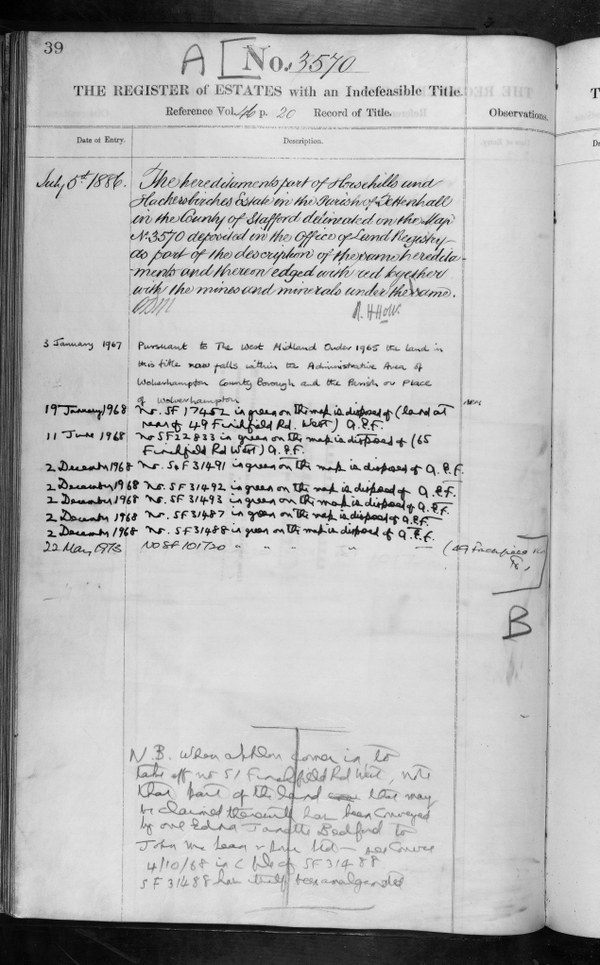 39
A [ No. 3570
THE REGISTER of ESTATES with an Indefeasible Title.
Reference Vol. 46 p. 20 Record of Title.
Observations.
Date of Entry.
Description.
July 5th 1886. The hereditaments part of Howehills and
Hockersbirches Estate in the Parish of Tettenhall
in the County of Stafford delineated on the Map
No 3570 deposited in the Office of Land Registry
as part of the description of the same heredita-
ments and thereon edged with red together
with the mines and minerals under the same.
3 January 1967 Pursuant to The West Midland Order 1965 the land in
this title now falls within the Administrative Area of
Wolverhampton County Borough and the Parish or Place
of Wolverhampton
19 January 1968 No. SF 17452 in green on the map is disposed of (land at
rear of 49 Finchfield Rd. West) A.P.F.
11 June 1968 No SF22833 in green on the map is disposed of (65
Finchfield Rd West) A.P.F.
2 December 1968 No. SF 31491 in green on the map is disposed of A.P.F.
2 December 1968 No. SF 31492 in green on the map is disposed of A.P.F.
2 December 1968 No. SF 31493 in green on the map is disposed of A.P.F.
2 December 1968 No. SF31487 in green on the map is disposed of A.P.F.
2 December 1968 No. SF31488 in green on the map is disposed of A.P.F.
22 May 1973 No SF 101720 " " " " — (49 Finchfield
B
N.B. When appln comes in to
take off no 51 Finchfield Rd West, note
that part of the land there may
be claimed has been conveyed
by one Edna Janette Bedford to
John Mc Lean Ltd — see Convce
4/10/68 in SF 31488
SF 31488 has itself been amalgamated